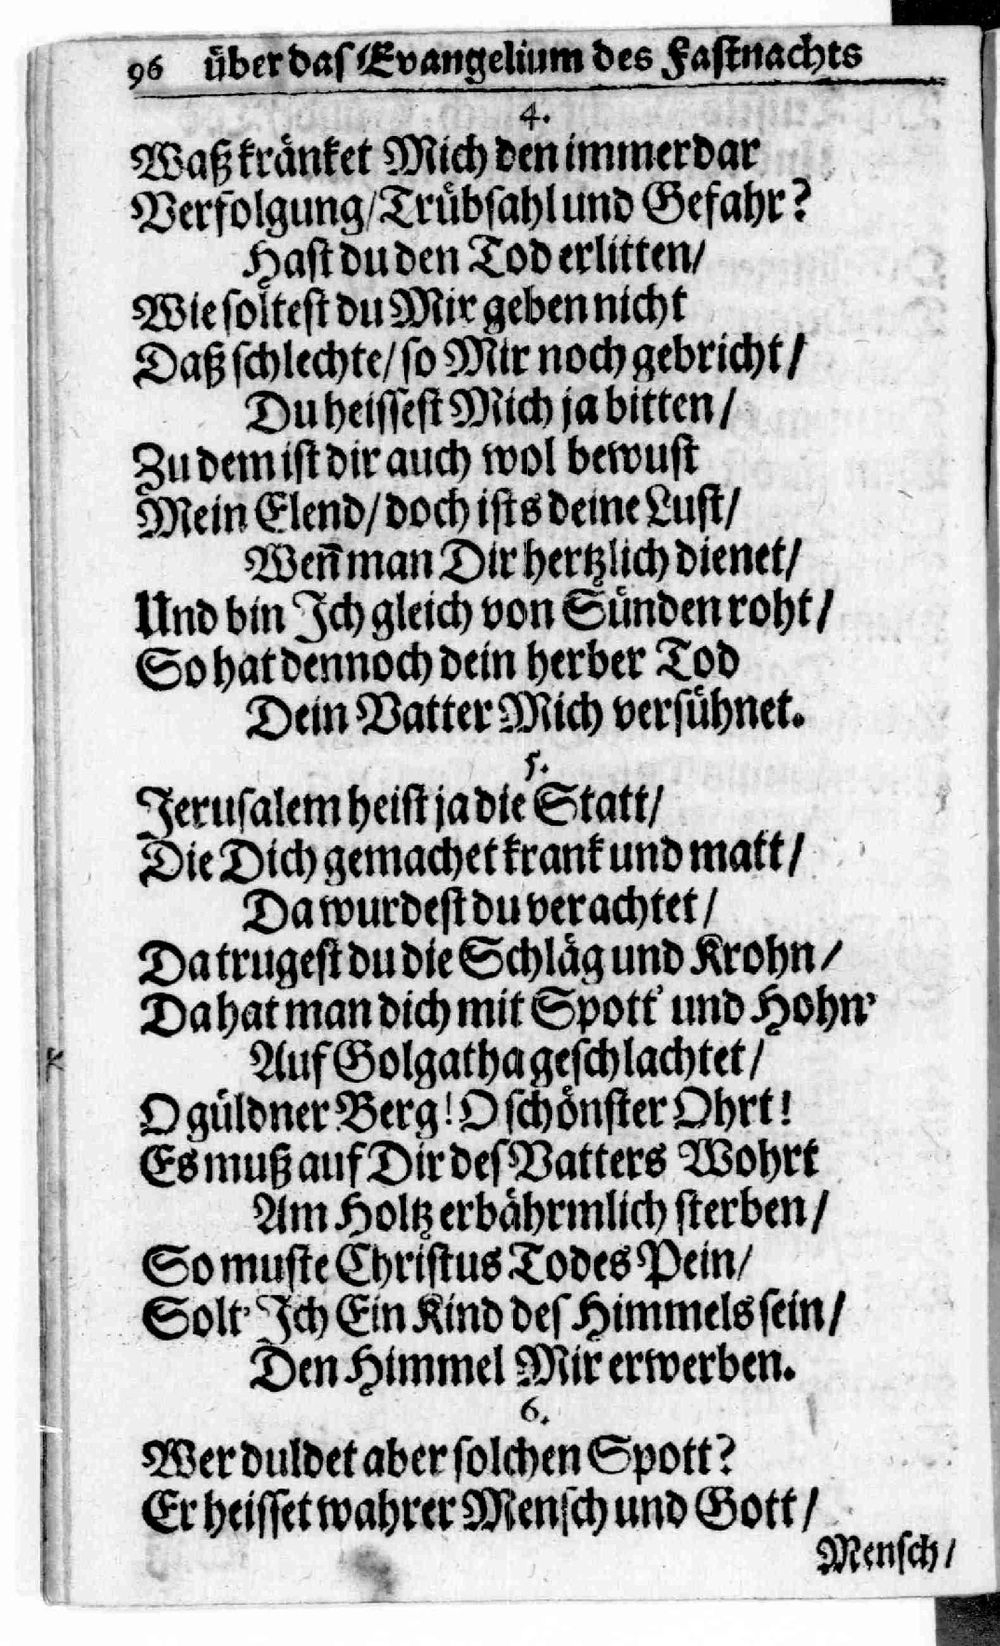 96 über das Evangelium des Fastnachts
4.
Waß kränket Mich den immerdar
Verfolgung/ Trübsahl und Gefahr?
Hast du den Tod erlitten/
Wie soltest du Mir geben nicht
Daß schlechte/ so Mir noch gebricht/
Du heissest Mich ja bitten/
Zu dem ist dir auch wol bewust
Mein Elend/ doch ists deine Lust/
Weñ man Dir hertzlich dienet/
Und bin Ich gleich von Sünden roht/
So hat dennoch dein herber Tod
Dein Vatter Mich versühnet.
5.
Jerusalem heist ja die Statt/
Die Dich gemachet krank und matt/
Da wurdest du verachtet/
Da trugest du die Schläg und Krohn/
Da hat man dich mit Spott' und Hohn'
Auf Golgatha geschlachtet/
O güldner Berg! O schönster Ohrt!
Es muß auf Dir des Vatters Wohrt
Am Holtz erbährmlich sterben/
So muste Christus Todes Pein/
Solt' Ich Ein Kind des Himmels sein/
Den Himmel Mir erwerben.
6.
Wer duldet aber solchen Spott?
Er heisset wahrer Mensch und Gott/
Mensch/